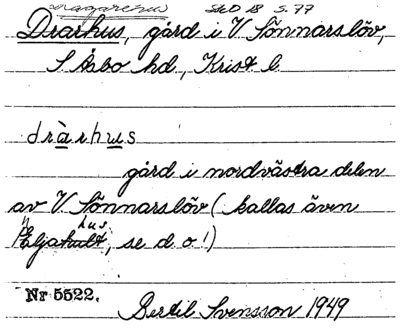 Dragarehus SkO 18 s. 77
Drarhus, gård i V. Sönnarslöv,
S. Åsbo hd, Krist. l.
dràrhus
gård i nordvästra delen
av V. Sönnarslöv (kallas även
hus
Päljahult, se d. o!)
Nr 5522. Bertil Svensson 1949